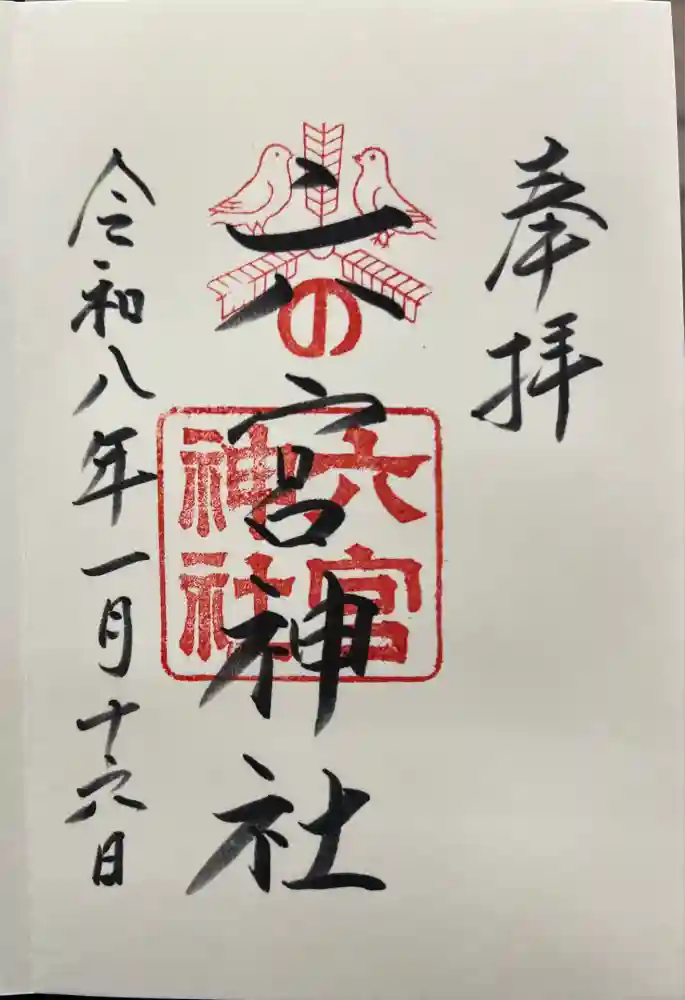 奉拝
六宮神社
の
六宮
神社
令和八年一月十六日